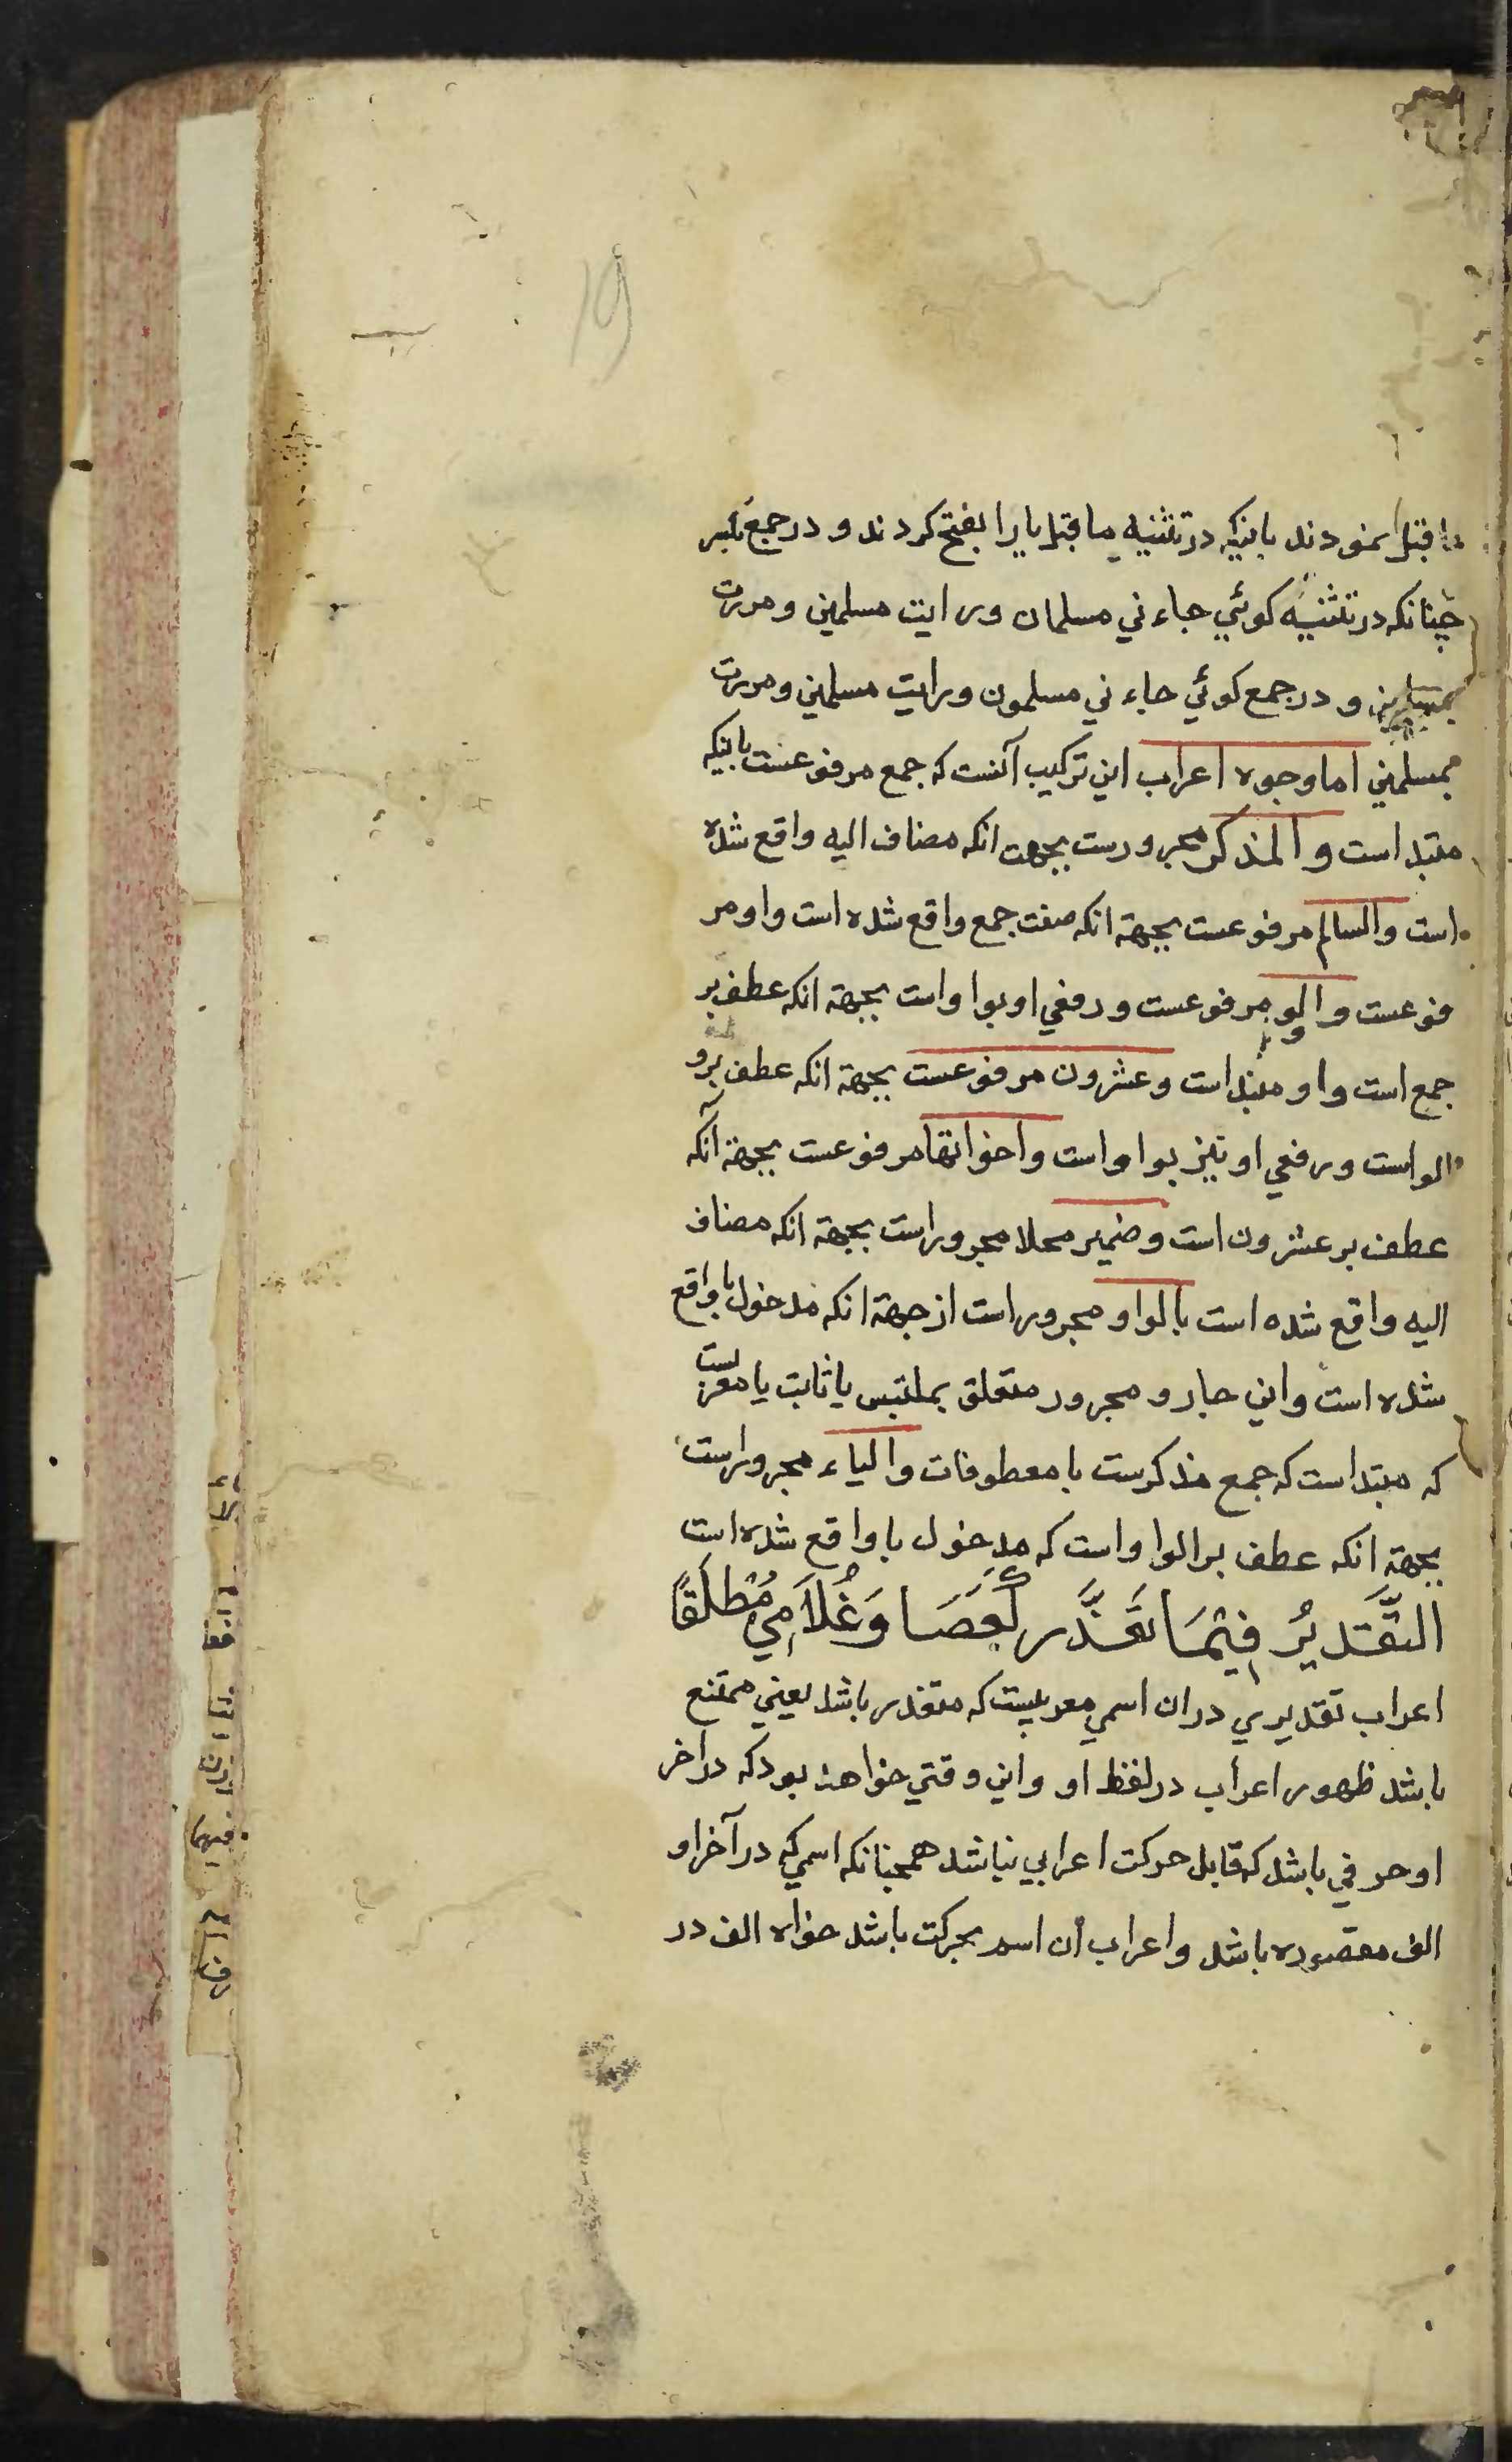 ما قبل نمودند باینکه در تثنیه ما قبل یا را بفتح کردند و در جمع بکسر
چنانکه در تثنیه کوئي جاءني مسلمان ورایت مسلمین ومررت
بمسلمین و در جمع کوئي جاءني مسلمون ورایت مسلمین ومررت
بمسلمین اما وجوه اعراب این ترکیب آنست که جمع مرفوعست باینکه
مبتداست والمذکر مجرورست بجهت انکه مضاف الیه واقع شده
است والسالم مرفوعست بجهة انکه صفت جمع واقع شده است واو مر
فوعست والو مرفوعست ورفعي او بواواست بجهة انکه عطف بر
جمع است واو مبتداست وعشرون مرفوعست بجهة انکه عطف برو
الواست ورفعي او نیز بواواست واخواتها مرفوعست بجهة انکه
عطف بر عشرون است وضمیر محلا مجروراست بجهة انکه مضاف
الیه واقع شده است بالواو مجروراست از جهة انکه مدخول با واقع
شده است واین جار و مجرور متعلق بملتبس یا ثابت یا معربست
که مبتداست که جمع مذکرست با معطوفات والیاء مجروراست
بجهة انکه عطف بر الواواست که مدخول با واقع شده است
التَّقْدیرُ فِیْمَا تَعَذَّرَ کَعَصَا وَغُلاَمِي مُطْلَقًا
اعراب تقدیري دران اسمي معربیست که متعذر باشد یعني ممتنع
باشد ظهور اعراب در لفظ او واین وقتي خواهد بود که در اخر
او حرفي باشد که قابل حرکت اعرابي نباشد همچنانکه اسمي که در آخر او
الف مقصوره باشد واعراب آن اسم بحرکت باشد خواه الف در